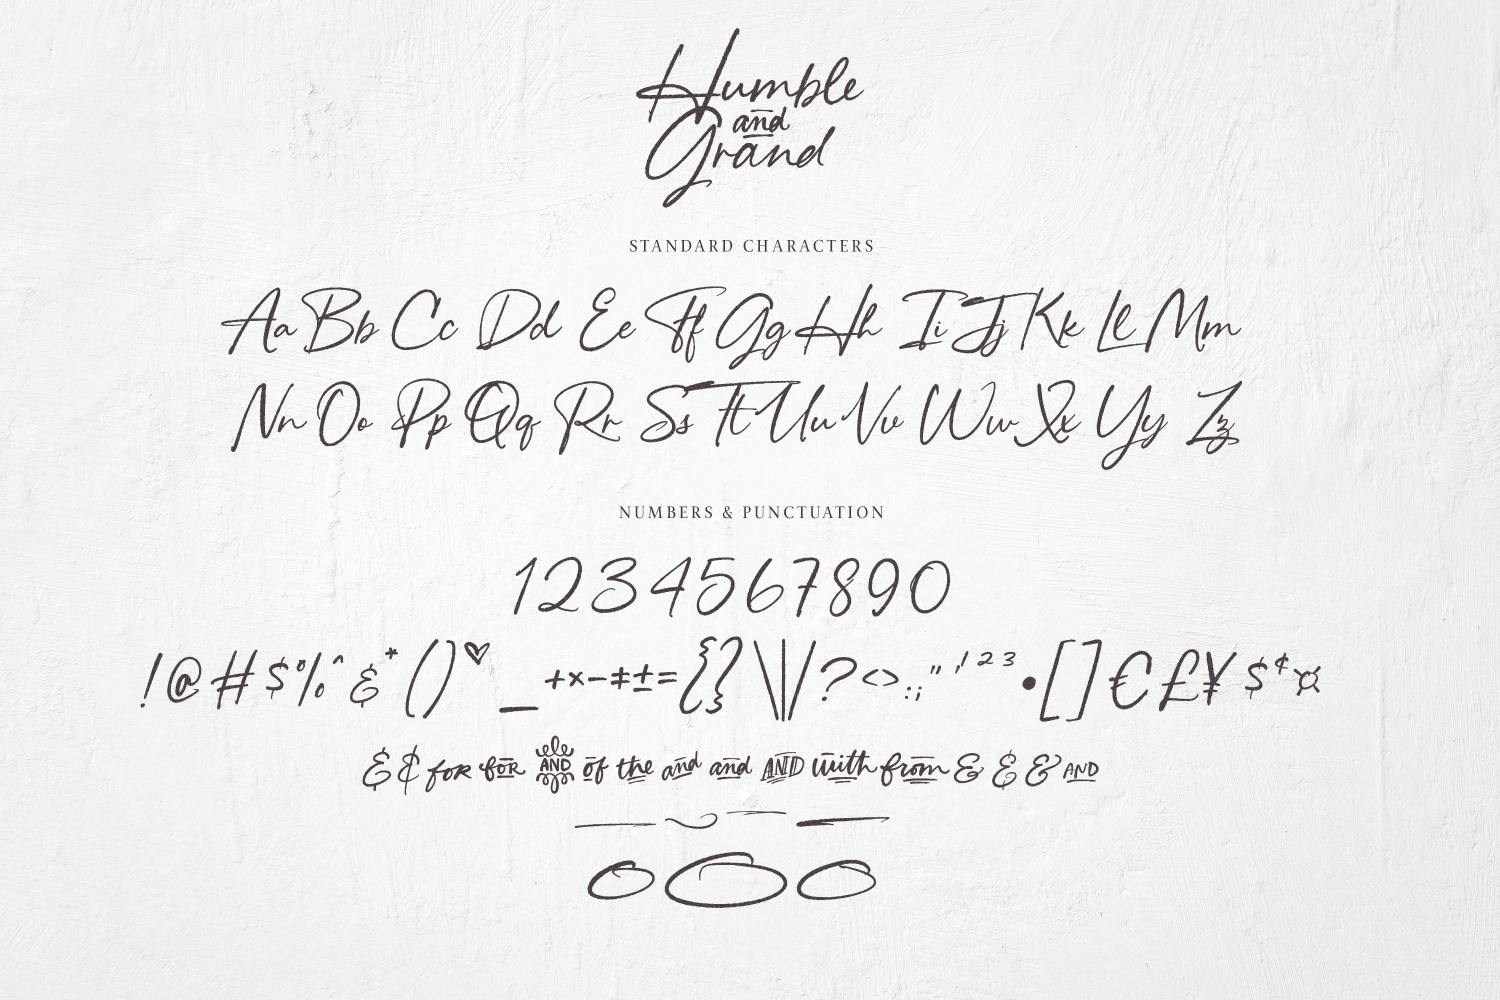 Humble
and
Grand
STANDARD CHARACTERS
Aa Bb Cc Dd Ee Ff Gg Hh Ii Jj Kk Ll Mm
Nn Oo Pp Qq Rr Ss Tt Uu Vv Ww Xx Yy Zz
NUMBERS & PUNCTUATION
1234567890
!@#$%^&*()♥_+×−÷±={}\|/?<>:;"'¹²³•[]€£¥$¢¤
& & for for AND of the and and AND with from & & & AND